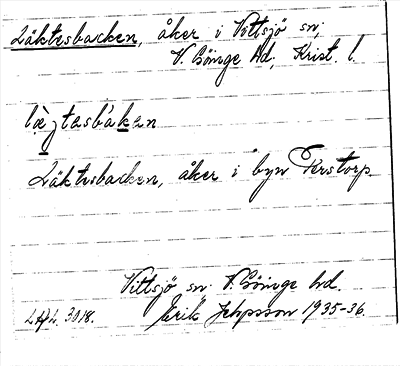 Läktesbacken, åker i Vittsjö sn,
V. Göinge hd, Krist. l.
læ̀ʒtasbáken
Läktesbacken, åker i byn Perstorp
Vittsjö sn. V. Göinge hd.
3018. Erik Jeppsson 1935-36.